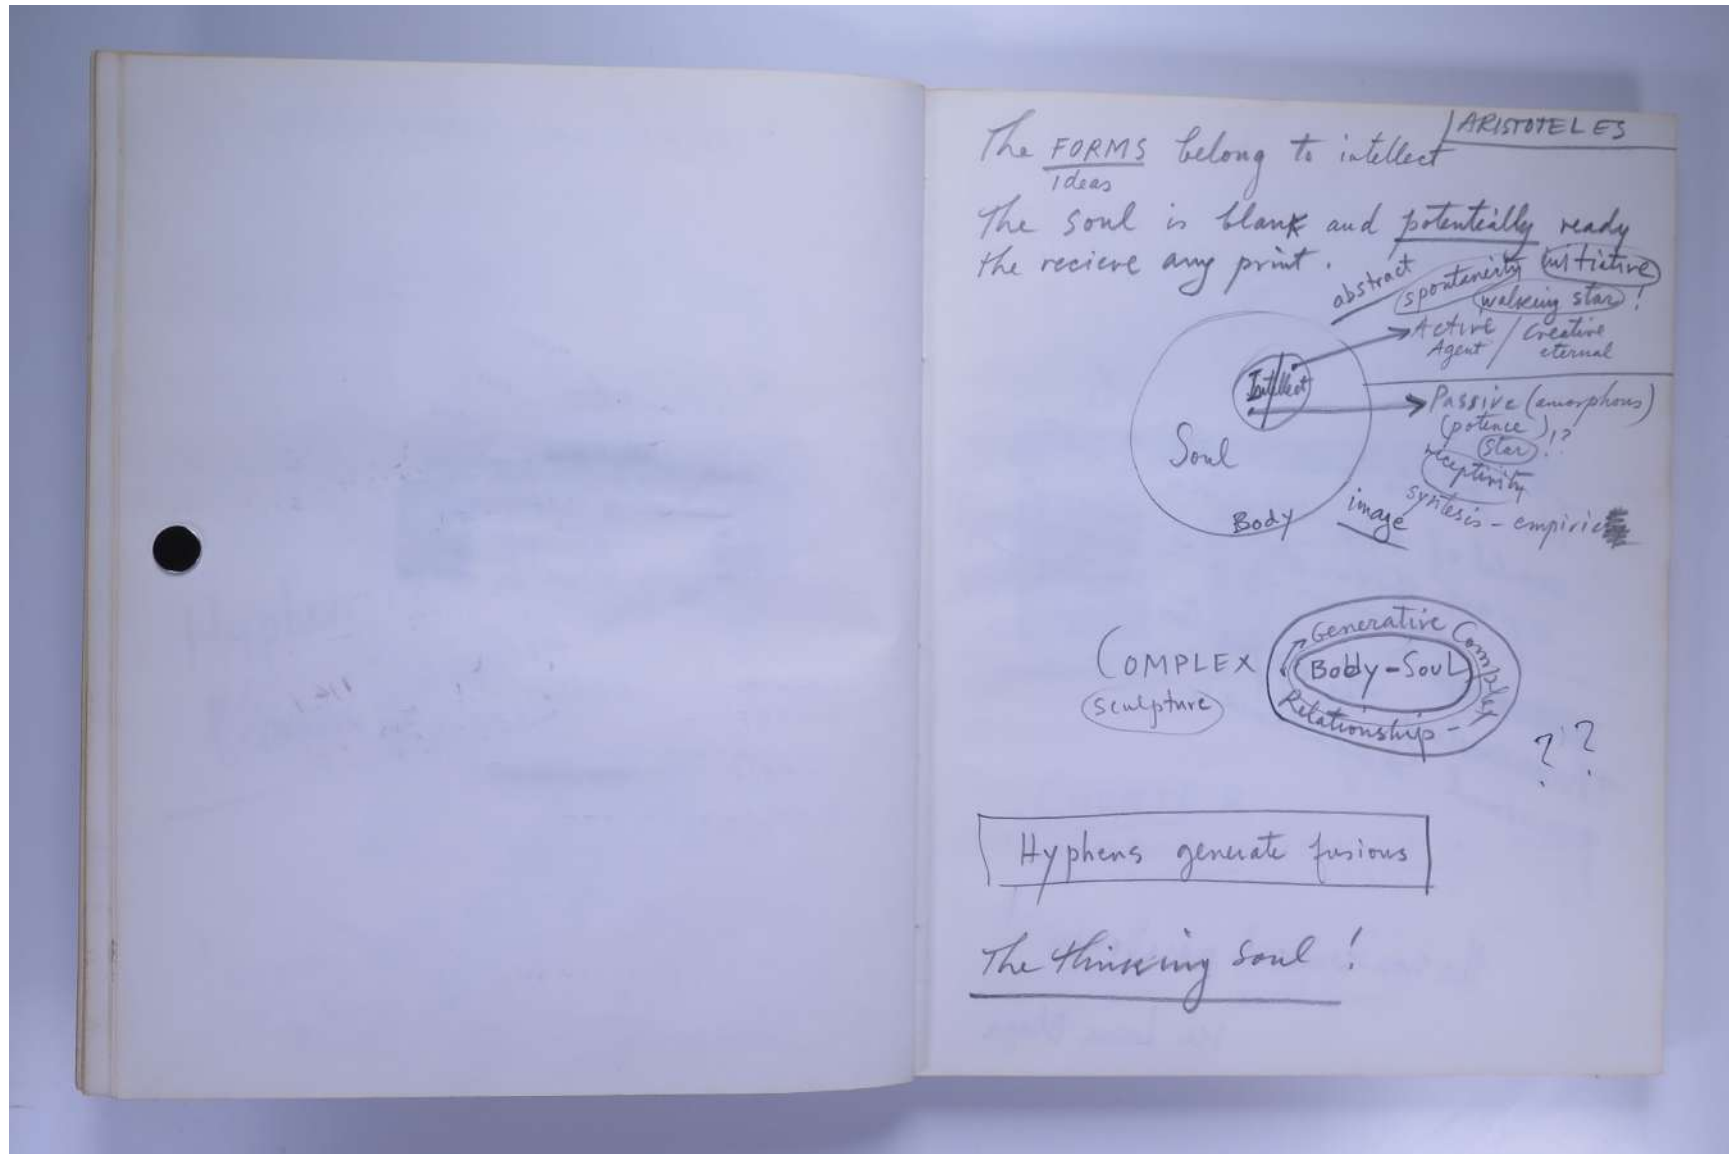 ARISTOTELES
The FORMS belong to intellect
ideas
The soul is blank and potentially ready
the recieve any print.
abstract
spontaneity
initiative
walking star !
Active / Creative
Agent eternal
Intellect
Passive (amorphous)
(potence) !?
star
receptivity
Soul
Body
image
syntesis - empiric
COMPLEX
sculpture
Generative Complex
Body-Soul
Relationship -
? ?
Hyphens generate fusions
The thinking soul !